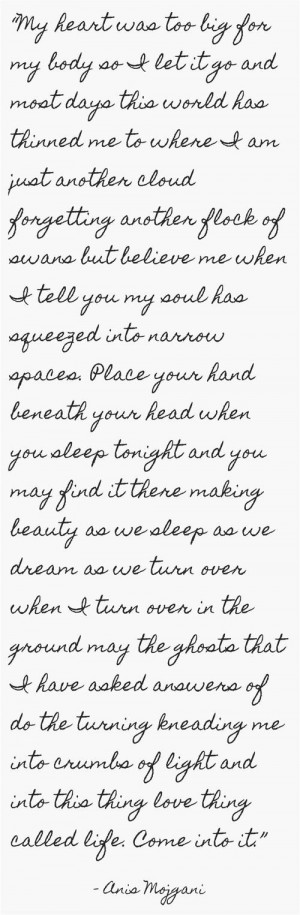 "My heart was too big for
my body so I let it go and
most days this world has
thinned me to where I am
just another cloud
forgetting another flock of
swans but believe me when
I tell you my soul has
squeezed into narrow
spaces. Place your hand
beneath your head when
you sleep tonight and you
may find it there making
beauty as we sleep as we
dream as we turn over
when I turn over in the
ground may the ghosts that
I have asked answers of
do the turning kneading me
into crumbs of light and
into this thing love thing
called life. Come into it."
- Anis Mojgani